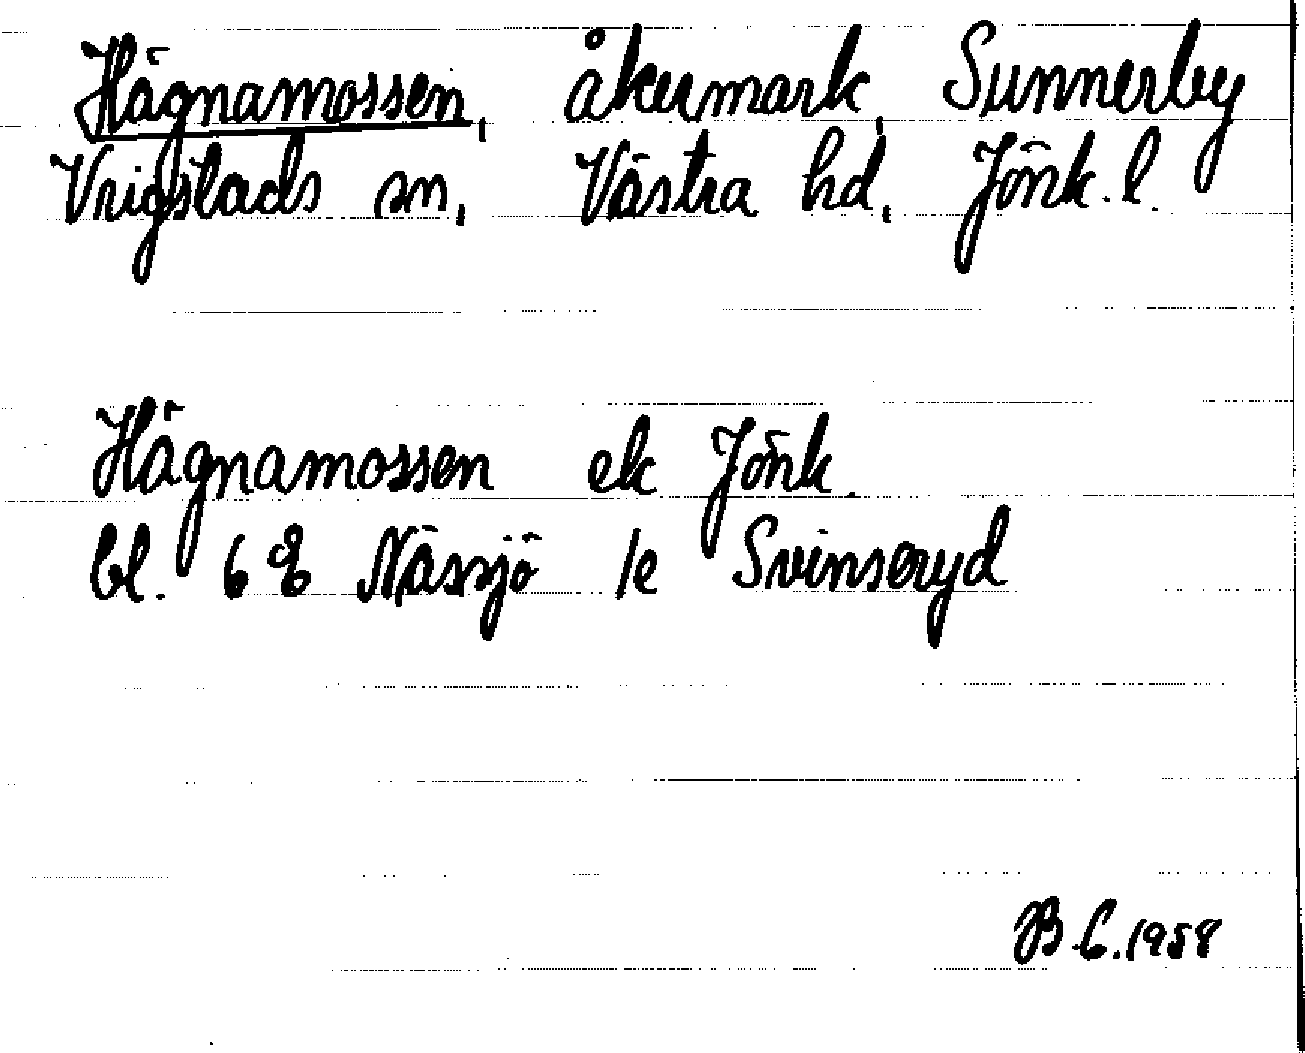 Hägnamossen, åkermark, Sunnerby
Vrigstads sn, Västra hd, Jönk. l.
Hägnamossen ek Jönk.
bl. 6 E Nässjö 1e Svinseryd
B C. 1958